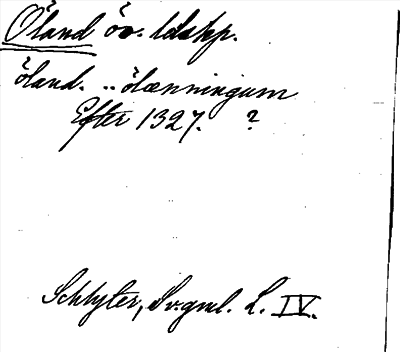 Öland öv. ldskp.
öland. .. ölænningium
Efter 1327. ?
Schlyter, Sv.gml. L. IV.